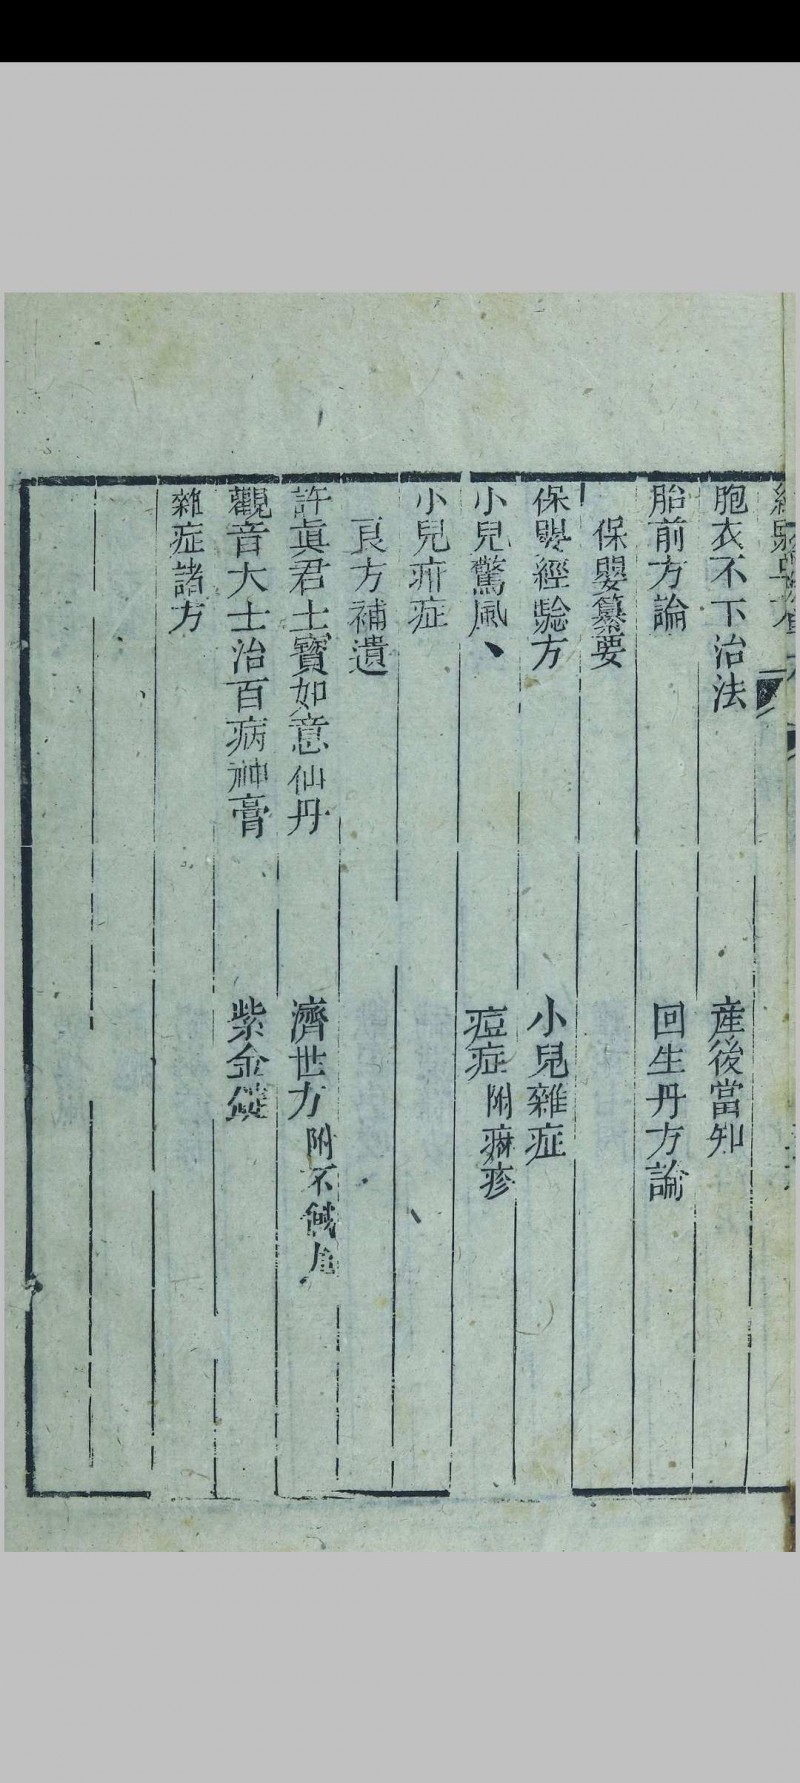 胞衣不下治法　產後當知
胎前方論　回生丹方論
保嬰纂要
保嬰經驗方　小兒雜症
小兒驚風、　痘症附痳疹
小兒疳症
良方補遺
許真君土寳如意仙丹　濟世方附不
觀音大士治百病神膏　紫金錠
雜症諸方